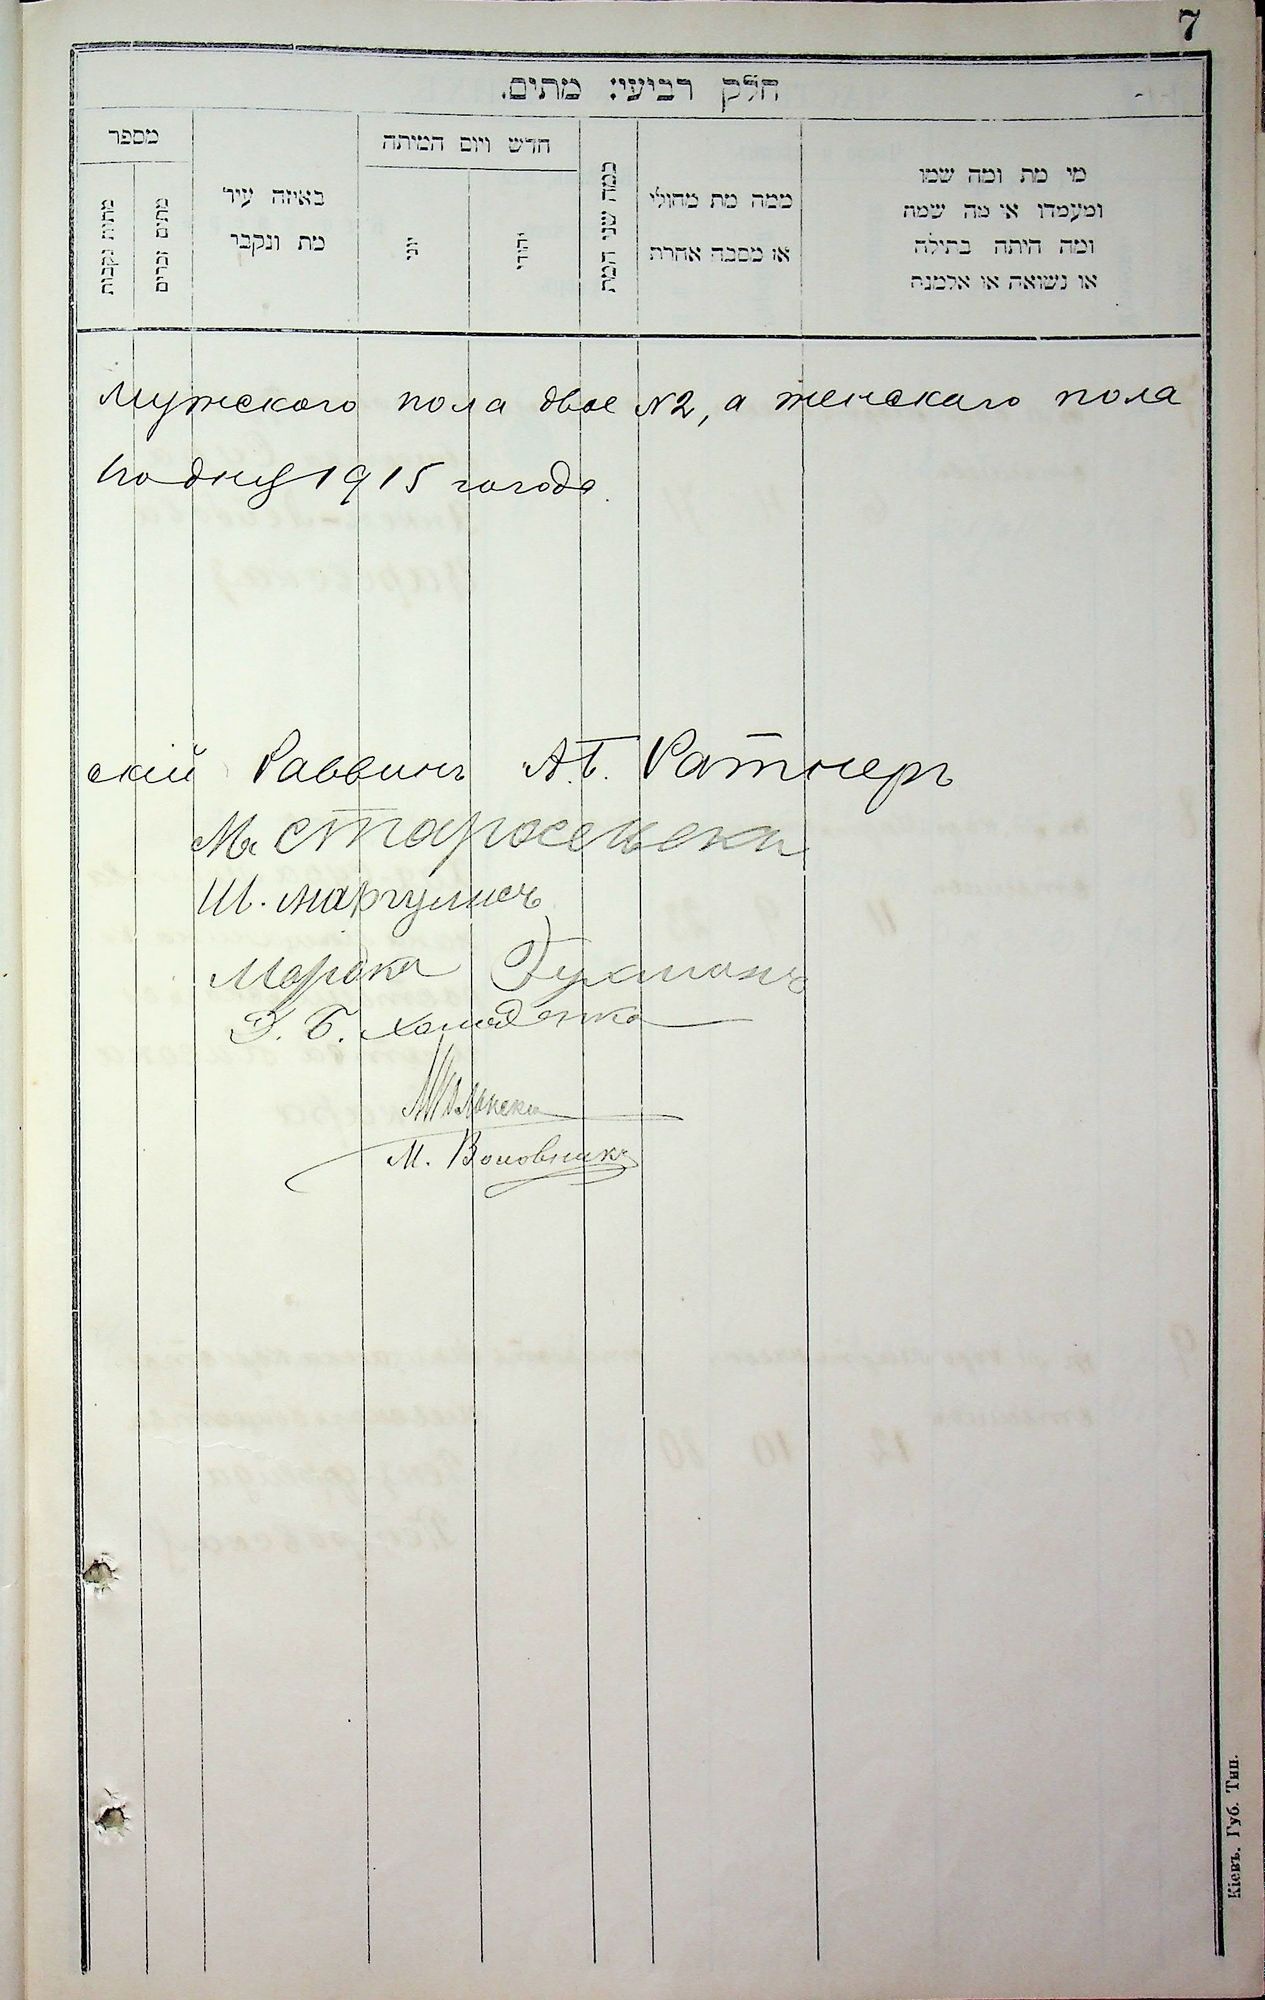 7
חלק רביעי: מתים.
מספר
מתות נקבות
מתים זכרים
באיזה עיר
מת ונקבר
חדש ויום המיתה
יוני
יהודי
כמה שני המת
ממה מת מחולי
או מסבה אחרת
מי מת ומה שמו
ומעמדו או מה שמה
ומה היתה בתולה
או נשואה או אלמנה
Мужского пола двое №2, а женскаго пола
1915 года.
скій Раввинъ А.Б. Ратнеръ
М. Старосельски
Ш. Маргулисъ
Мордко
З. Б. Холоденко
М. Воловникъ
Кіевъ. Губ. Тип.